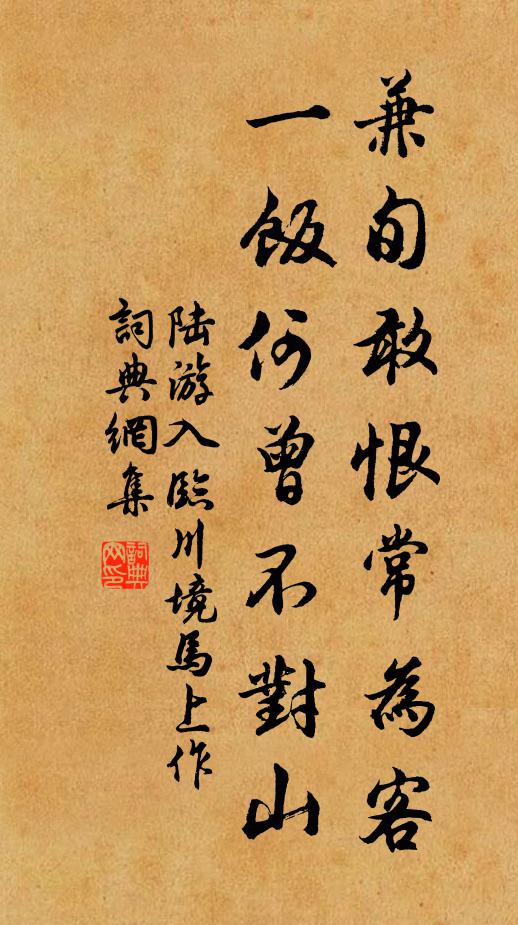 兼旬敢恨常為客
一飯何曾不對山
陸游入臨川境馬上作
詞典網集
詞典
网印